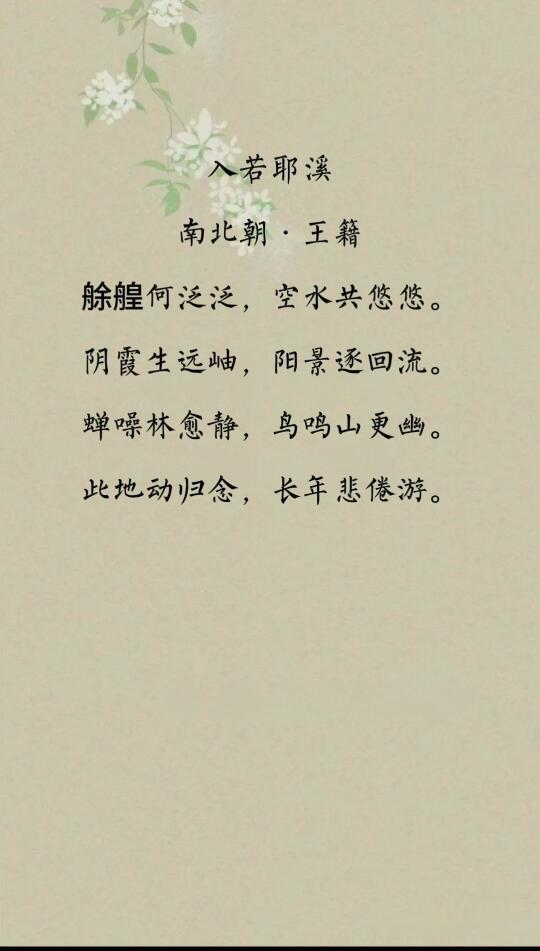 入若耶溪
南北朝·王籍
艅艎何泛泛，空水共悠悠。
阴霞生远岫，阳景逐回流。
蝉噪林愈静，鸟鸣山更幽。
此地动归念，长年悲倦游。